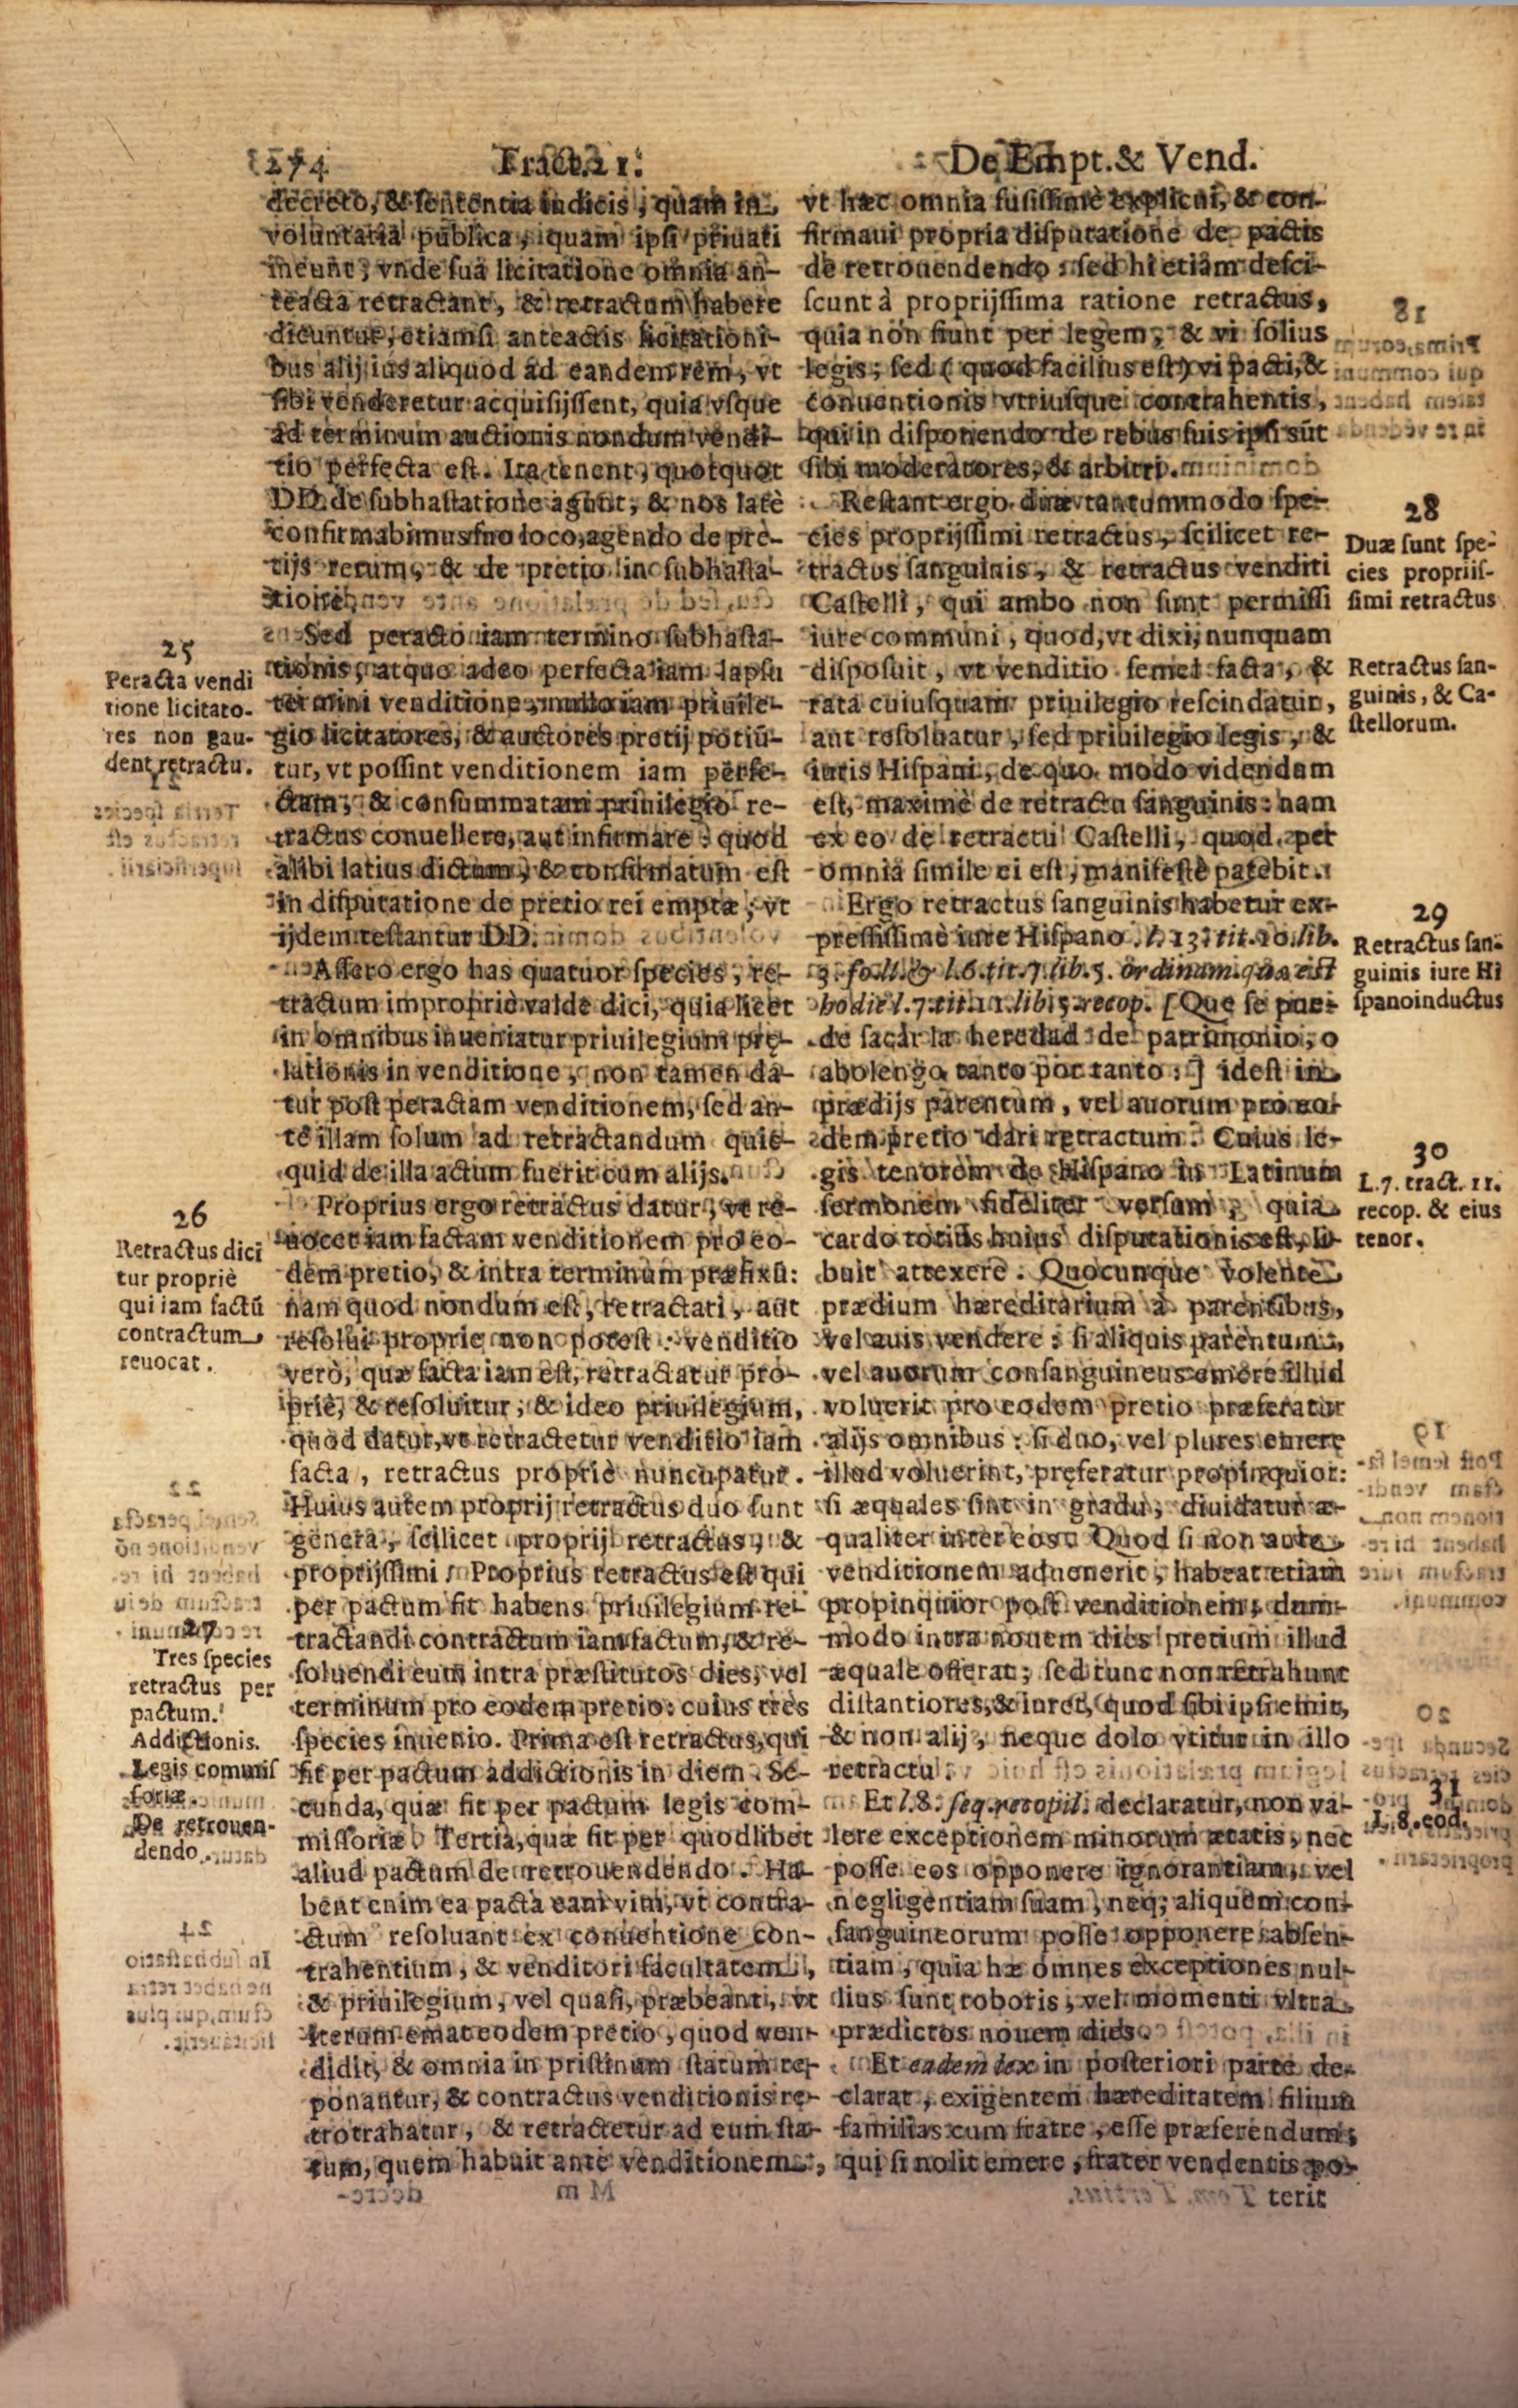 274 Tract. 21. De Empt. & Vend.
decreto, & sententia iudicis, quam in
voluntaria publica, quam ipsi priuati
ineunt; vnde sua licitatione omnia an-
teacta retractant, & retractum habere
dicuntur, etiamsi anteactis licitationi-
bus alij ius aliquod ad eandem rem, vt
sibi venderetur acquisijssent, quia vsque
ad terminum auctionis nondum vendi-
tio perfecta est. Ita tenent, quotquot
DD. de subhastatione agunt, & nos latè
confirmabimus suo loco, agendo de pre-
tijs rerum, & de pretio in subhasta-
tione.
25
Peracta vendi
tione licitato-
res non gau-
dent retractu.
Sed peracto iam termino subhasta-
tionis, atque adeo perfecta iam lapsu
termini venditione, nullo iam priuile-
gio licitatores, & auctores pretij potiũ-
tur, vt possint venditionem iam perfe-
ctam, & consummatam priuilegio re-
tractus conuellere, aut infirmare: quod
alibi latius dictum, & confirmatum est
in disputatione de pretio rei emptæ, vt
ijdem testantur DD.
Assero ergo has quatuor species, re-
tractum impropriè valde dici, quia licet
in omnibus inueniatur priuilegium pre-
lationis in venditione, non tamen da-
tur post peractam venditionem, sed an-
te illam solum ad retractandum quic-
quid de illa actum fuerit cum alijs.
26
Retractus dici
tur propriè
qui iam factũ
contractum
reuocat.
Proprius ergo retractus datur, vt re-
uocet iam factam venditionem pro eo-
dem pretio, & intra terminum præfixũ:
nam quod nondum est, retractari, aut
resolui proprie non potest: venditio
verò, quæ facta iam est, retractatur pro-
priè, & resoluitur; & ideo priuilegium,
quod datur, vt retractetur venditio iam
facta, retractus propriè nuncupatur.
Huius autem proprij retractus duo sunt
genera, scilicet proprij retractus, &
proprijssimi. Proprius retractus est qui
per pactum fit habens priuilegium re-
tractandi contractum iam factum, & re-
soluendi eum intra præstitutos dies, vel
terminum pro eodem pretio: cuius tres
species inuenio. Prima est retractus, qui
fit per pactum addictionis in diem. Se-
cunda, quæ fit per pactum legis com-
missoriæ. Tertia, quæ fit per quodlibet
aliud pactum de retrouendendo. Ha-
bent enim ea pacta eam vim, vt contra-
ctum resoluant ex conuentione con-
trahentium, & venditori facultatem,
& priuilegium, vel quasi, præbeant, vt
iterum emat eodem pretio, quod ven-
didit, & omnia in pristinum statum re-
ponantur, & contractus venditionis re-
trotrahatur, & retractetur ad eum sta-
tum, quem habuit ante venditionem,
27
Tres species
retractus per
pactum.
Addictionis.
Legis commis
soriæ.
De retrouen-
dendo.
vt hæc omnia fusissimè explicui, & con-
firmaui propria disputatione de pactis
de retrouendendo: sed hi etiam desci-
scunt à proprijssima ratione retractus,
quia non fiunt per legem, & vi solius
legis; sed (quod facilius est) vi pacti, &
conuentionis vtriusque contrahentis,
qui in disponendo de rebus suis ipsi sũt
sibi moderatores, & arbitri.
28
Duæ sunt spe-
cies propriis-
simi retractus
Retractus san-
guinis, & Ca-
stellorum.
Restant ergo duæ tantummodo spe-
cies proprijssimi retractus, scilicet re-
tractus sanguinis, & retractus venditi
Castelli, qui ambo non sunt permissi
iure communi, quod, vt dixi, nunquam
disposuit, vt venditio semel facta, &
rata cuiusquam priuilegio rescindatur,
aut resoluatur, sed priuilegio legis, &
iuris Hispani, de quo modo videndum
est, maximè de retractu sanguinis: nam
ex eo de retractu Castelli, quod per
omnia simile ei est, manifestè patebit.
29
Retractus san-
guinis iure Hi
spano inductus
Ergo retractus sanguinis habetur ex-
pressissimè iure Hispano. l. 13. tit. 10. lib.
3. fo. ll. & l. 6. tit. 7. lib. 5. ordinam. quæ est
hodie l. 7. tit. 11. lib. 5. recop. [Que se pue-
de sacar la heredad de patrimonio, o
abolengo tanto por tanto:] idest in
prædijs parentum, vel auorum pro eo-
dem pretio dari retractum. Cuius le-
gis tenorem de Hispano in Latinum
sermonem fideliter versam, quia
cardo totius huius disputationis est, li-
buit attexere. Quocunque volente
prædium hæreditarium à parentibus,
vel auis vendere: si aliquis parentum,
vel auorum consanguineus emere illud
voluerit pro eodem pretio præferatur
alijs omnibus: si duo, vel plures emere
illud voluerint, preferatur propinquior:
si æquales sint in gradu, diuidatur æ-
qualiter inter eos. Quod si non ante
venditionem aduenerit, habeat etiam
propinquior post venditionem, dum-
modo intra nouem dies pretium illud
æquale offerat; sed tunc non retrahunt
distantiores, & iuret, quod sibi ipsi emit,
& non alij, neque dolo vtitur in illo
retractu.
30
L. 7. tract. 11.
recop. & eius
tenor.
31
L. 8. eod.
Et l. 8. seq. recopil. declaratur, non va-
lere exceptionem minorum ætatis, nec
posse eos opponere ignorantiam, vel
negligentiam suam, neq; aliquem con-
sanguineorum posse opponere absen-
tiam, quia hæ omnes exceptiones nul-
lius sunt roboris, vel momenti vltra
prædictos nouem dies.
Et eadem lex in posteriori parte de-
clarat, exigentem hæreditatem filium
familias cum fratre, esse præferendum,
qui si nolit emere, frater vendentis po-
terit